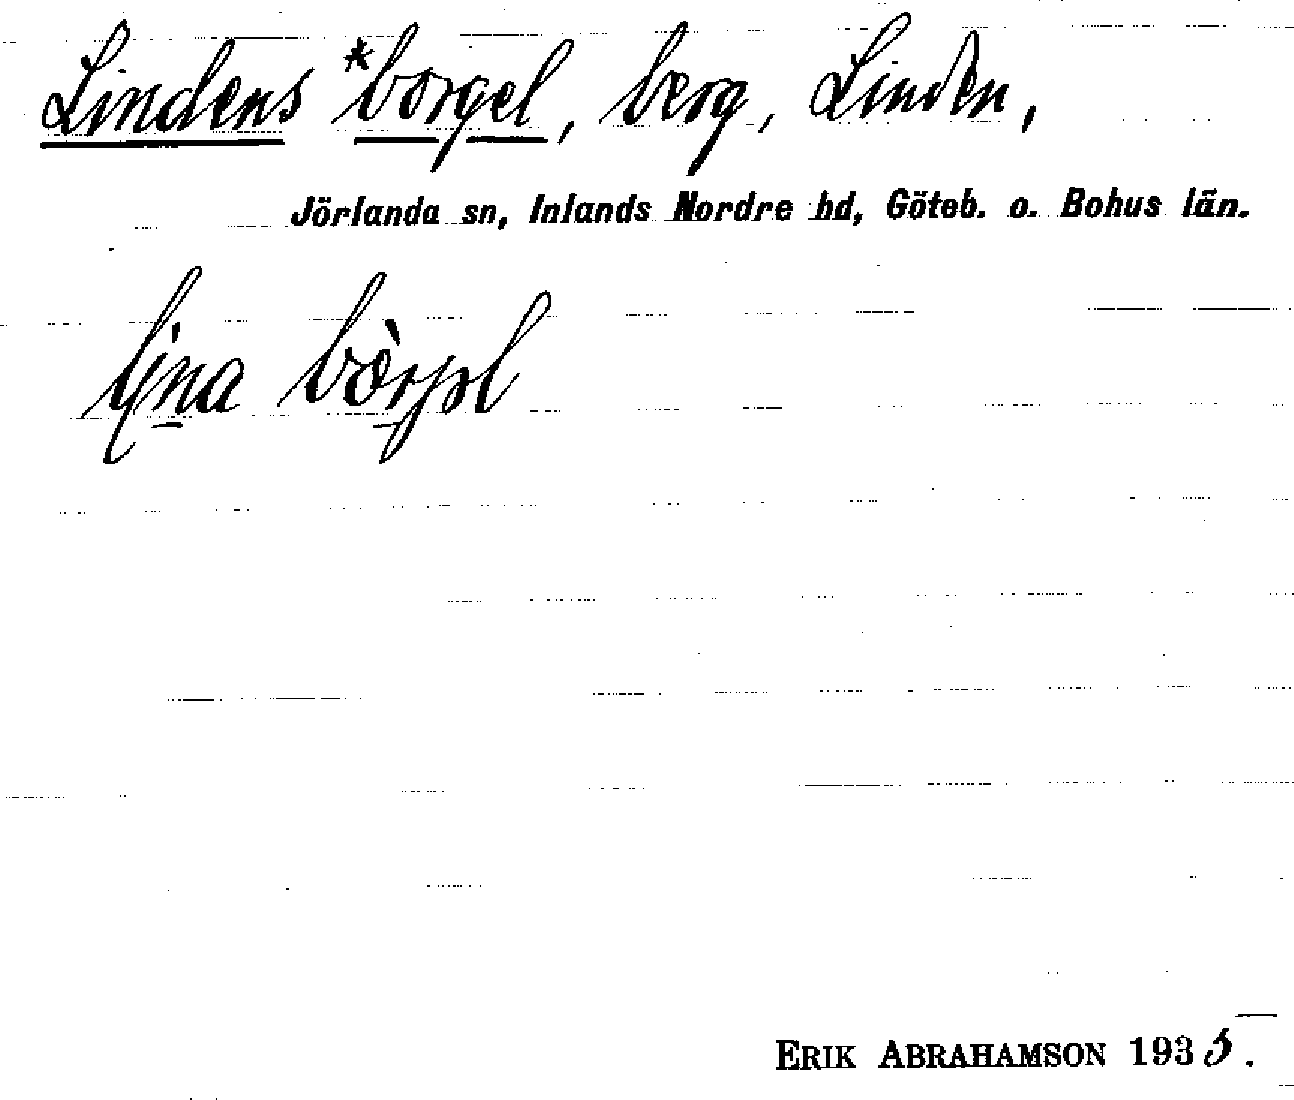 Lindens *borgel, berg, Linden,
Jörlanda sn, Inlands Nordre hd, Göteb. o. Bohus län.
ERIK ABRAHAMSON 1935.